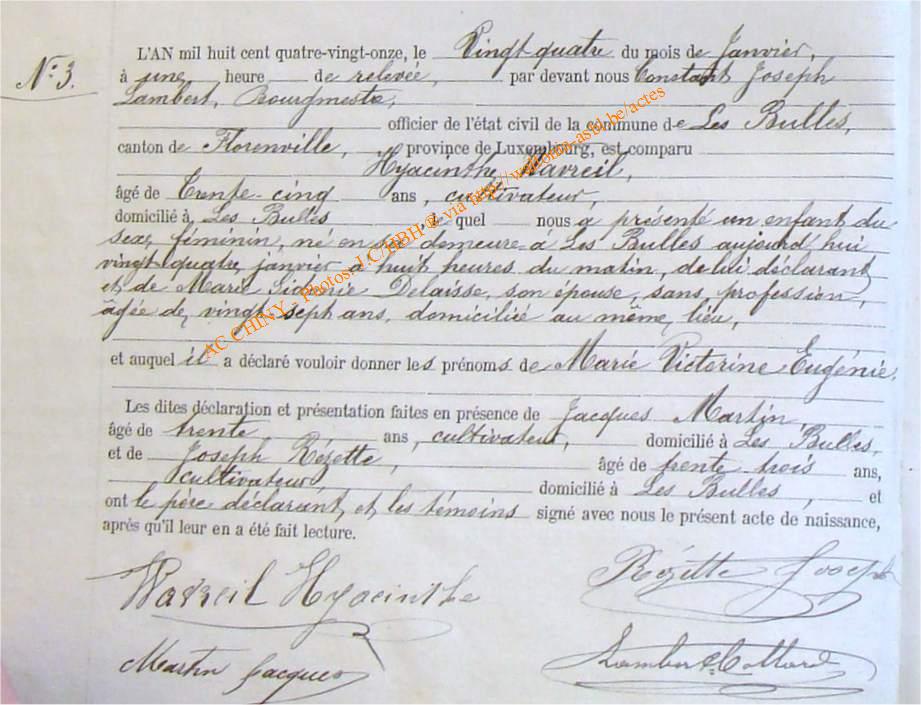 N.º 3.
L'AN mil huit cent quatre-vingt-onze, le Vingt quatre du mois de Janvier,
à une heure de relevée, par devant nous Constant Joseph
Lambert, Bourgmestre,
officier de l'état civil de la commune de Les Bulles,
canton de Florenville, province de Luxembourg, est comparu
Hyacinthe Wavreil,
âgé de Trente-cinq ans, cultivateur,
domicilié à Les Bulles, lequel nous a présenté un enfant du
sexe féminin, né en sa demeure à Les Bulles aujourd'hui
vingt quatre janvier à huit heures du matin, de lui déclarant
et de Marie Sidonie Delaisse, son épouse, sans profession,
âgée de vingt sept ans, domiciliée au même lieu,
et auquel il a déclaré vouloir donner les prénoms de Marie Victorine Eugénie.
Les dites déclaration et présentation faites en présence de Jacques Martin,
âgé de trente ans, cultivateur, domicilié à Les Bulles,
et de Joseph Rézette, âgé de trente trois ans,
cultivateur, domicilié à Les Bulles, et
ont le père déclarant et les témoins signé avec nous le présent acte de naissance,
après qu'il leur en a été fait lecture.
Wavreil Hyacinthe
Rézette Joseph
Martin Jacques
Lambert Collard
AC CHINY Photos: J.C/HBH ® via http://wallonia-asbl.be/actes